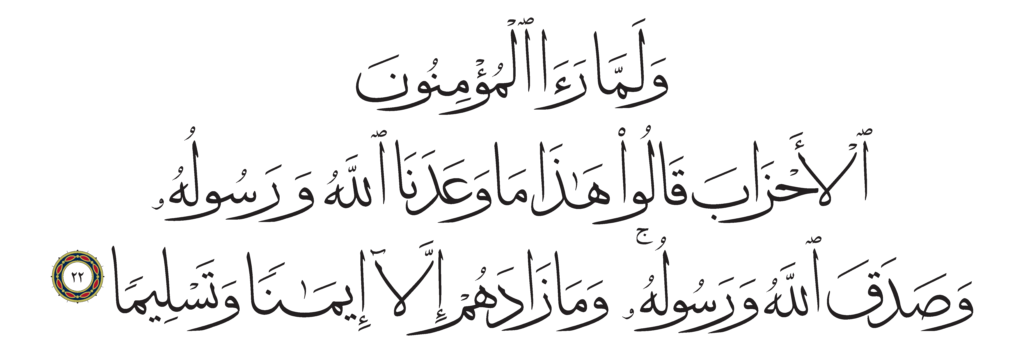 وَلَمَّا رَءَا ٱلْمُؤْمِنُونَ
ٱلْأَحْزَابَ قَالُوا۟ هَٰذَا مَا وَعَدَنَا ٱللَّهُ وَرَسُولُهُۥ
وَصَدَقَ ٱللَّهُ وَرَسُولُهُۥ ۚ وَمَا زَادَهُمْ إِلَّآ إِيمَٰنًا وَتَسْلِيمًا ٢٢